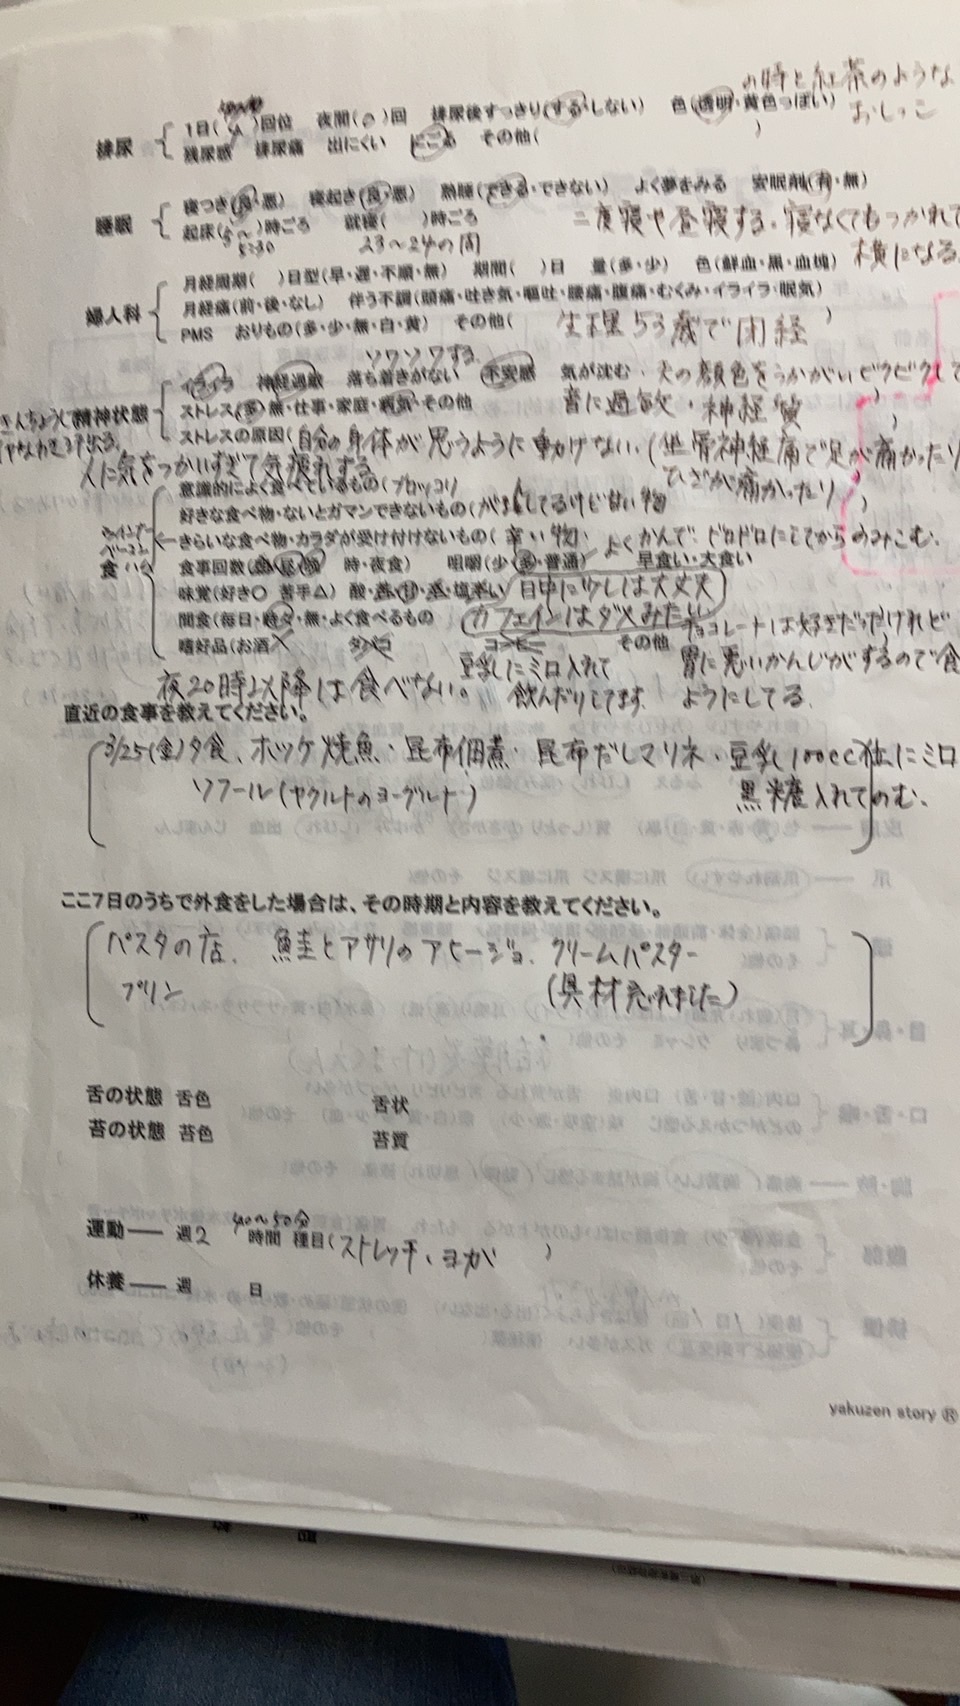 の時と紅茶のような
おしっこ
排尿 1日( )回位 夜間(0)回 排尿後すっきり(する・しない) 色(透明・黄色っぽい)
残尿感 排尿痛 出にくい にごる その他( )
睡眠 寝つき(良・悪) 寝起き(良・悪) 熟睡(できる・できない) よく夢をみる 安眠剤(有・無)
起床(5~5:30)時ごろ 就寝( )時ごろ
23~24の間
二度寝や昼寝する・寝なくてもつかれて
横になる
婦人科 月経周期( )日型(早・遅・不順・無) 期間( )日 量(多・少) 色(鮮血・黒・血塊)
月経痛(前・後・なし) 伴う不調(頭痛・吐き気・嘔吐・腰痛・腹痛・むくみ・イライラ・眠気)
PMS おりもの(多・少・無・白・黄) その他( )
生理 53歳で閉経
ソワソワする
精神状態 イライラ 神経過敏 落ち着きがない 不安感 気が沈む・人の顔色をうかがいビクビクして
ストレス(多)無・仕事・家庭・病気・その他 音に過敏・神経質
きんちょうして
ストレスの原因(自分の身体が思うように動けない.(坐骨神経痛で足が痛かったり
ひざが痛かったり)
人に気をつかいすぎて気疲れする
食 意識的によく食べているもの(ブロッコリ
好きな食べ物・ないとガマンできないもの(がまんしてるけど甘い物
きらいな食べ物・カラダが受け付けないもの(辛い物.
よくかんで、ドロドロにしてからのみこむ.
ウインナー
ベーコン
ハム
食事回数(朝・昼・晩 時・夜食) 咀嚼(少・多・普通) 早食い・大食い
味覚(好き○ 苦手△) 酸・苦・甘・辛・塩辛い 日中に少しは大丈夫
間食(毎日・時々・無・よく食べるもの カフェインはダメみたい
嗜好品(お酒 タバコ コーヒー その他
チョコレートは好きだったけれど
胃に悪いかんじがするので食
ようにしてる.
豆乳にミロ入れて
飲んだりしてます.
夜20時以降は食べない。
直近の食事を教えてください。
3/25(金)夕食、ホッケ焼魚・昆布佃煮・昆布だしマリネ・豆乳100cc位にミロ
ソフール(ヤクルトのヨーグルト) 黒糖入れてのむ、
ここ7日のうちで外食をした場合は、その時期と内容を教えてください。
パスタの店、 鮭とアサリのアヒージョ、クリームパスター
プリン (具材忘れました)
舌の状態 舌色 舌状
苔の状態 苔色 苔質
40~50分
運動── 週2 時間 種目(ストレッチ、ヨガ )
休養── 週 日
yakuzen story ®